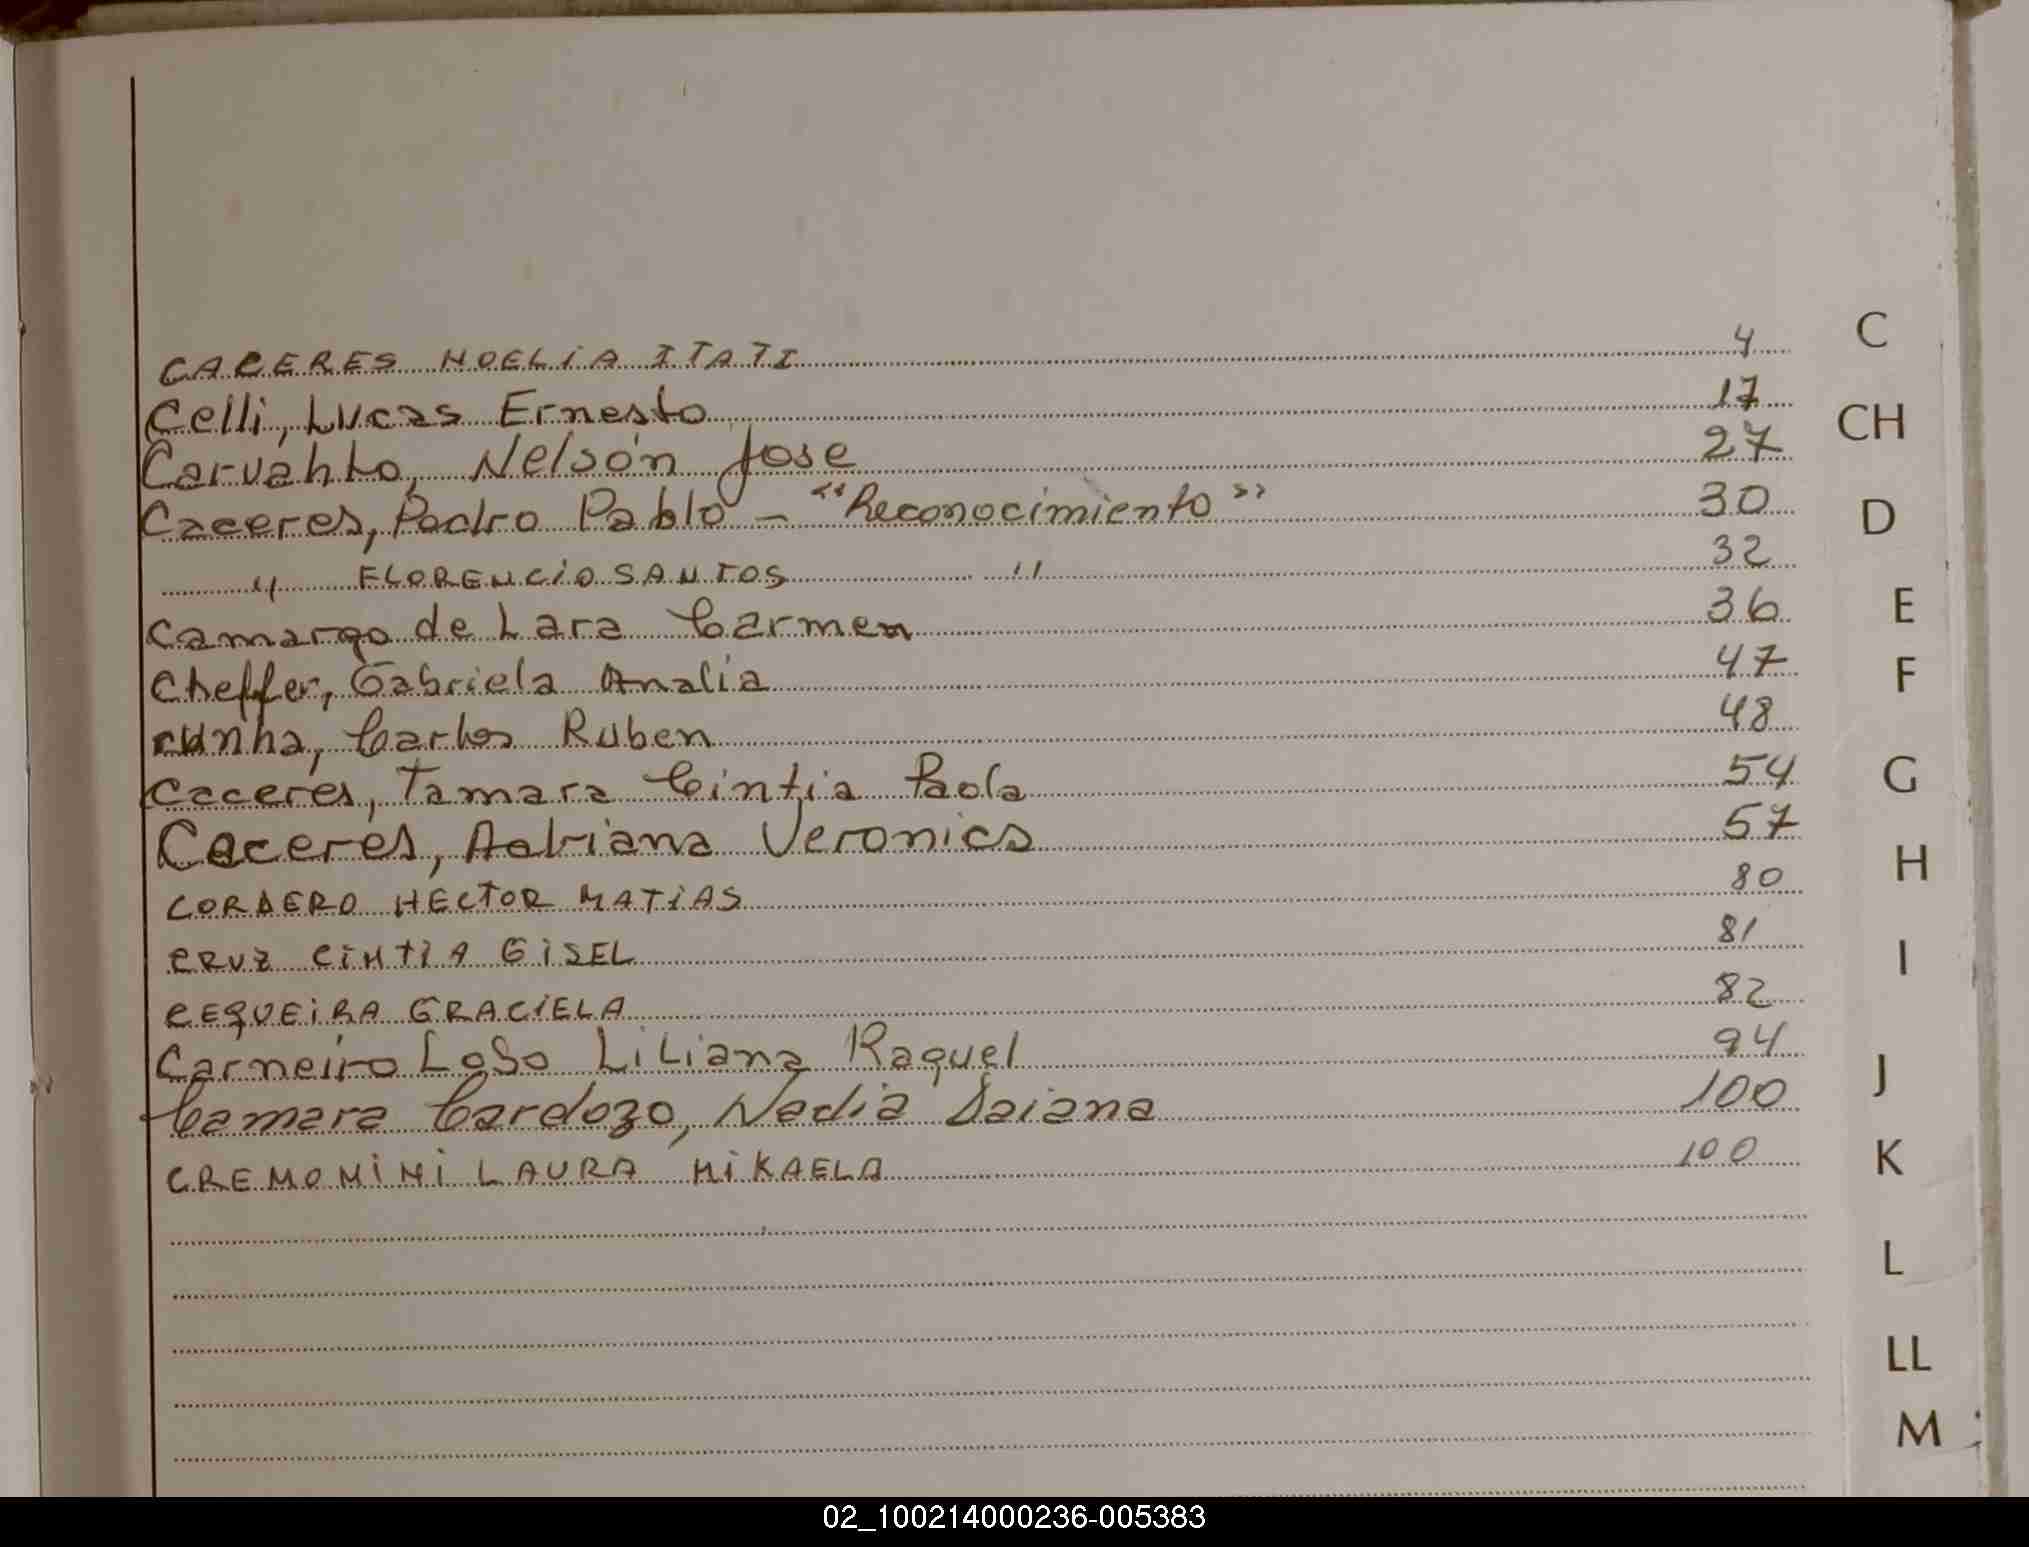 CACERES NOELIA ITATI 4
Celli, Lucas Ernesto 17
Carvahlo, Nelson Jose 27
Caceres, Pedro Pablo - "Reconocimiento" 30
" FLORENCIO SANTOS " 32
Camargo de Lara Carmen 36
Cheffer, Gabriela Analia 47
Cunha, Carlos Ruben 48
Caceres, Tamara Cintia Paola 54
Caceres, Adriana Veronica 57
CORDERO HECTOR MATIAS 80
CRUZ CINTIA GISEL 81
CEQUEIRA GRACIELA 82
Carneiro Lobo Liliana Raquel 94
Camara Cardozo, Nadia Daiana 100
CREMONINI LAURA MIKAELA 100
C
CH
D
E
F
G
H
I
J
K
L
LL
M
02_100214000236-005383